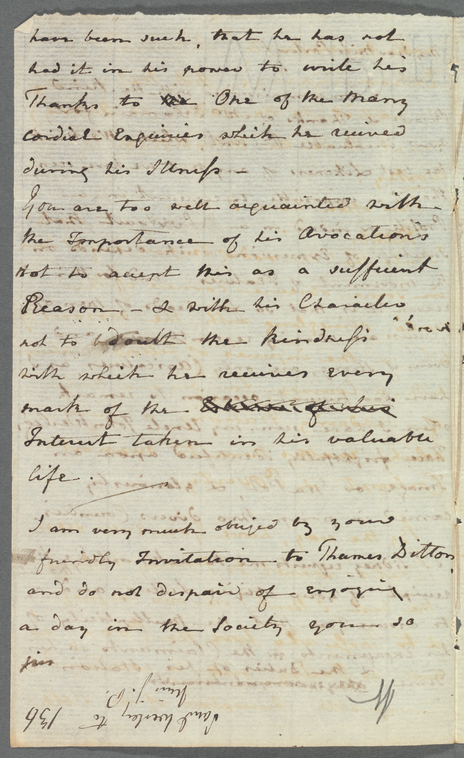 have been such, that he has not
had it in his power to write his
Thanks to One of the many
cordial Enquiries which he received
during his Illness –
You are too well acquainted with
the Importance of his Avocations
not to accept this as a sufficient
Reason, – & with his Character
not to doubt the kindness
with which he receives every
mark of the
Interest taken in his valuable
life.
I am very much obliged by your
friendly Invitation to Thames Ditton,
and do not despair of enjoying
a day in the Society you so
Saml Wesley to
136